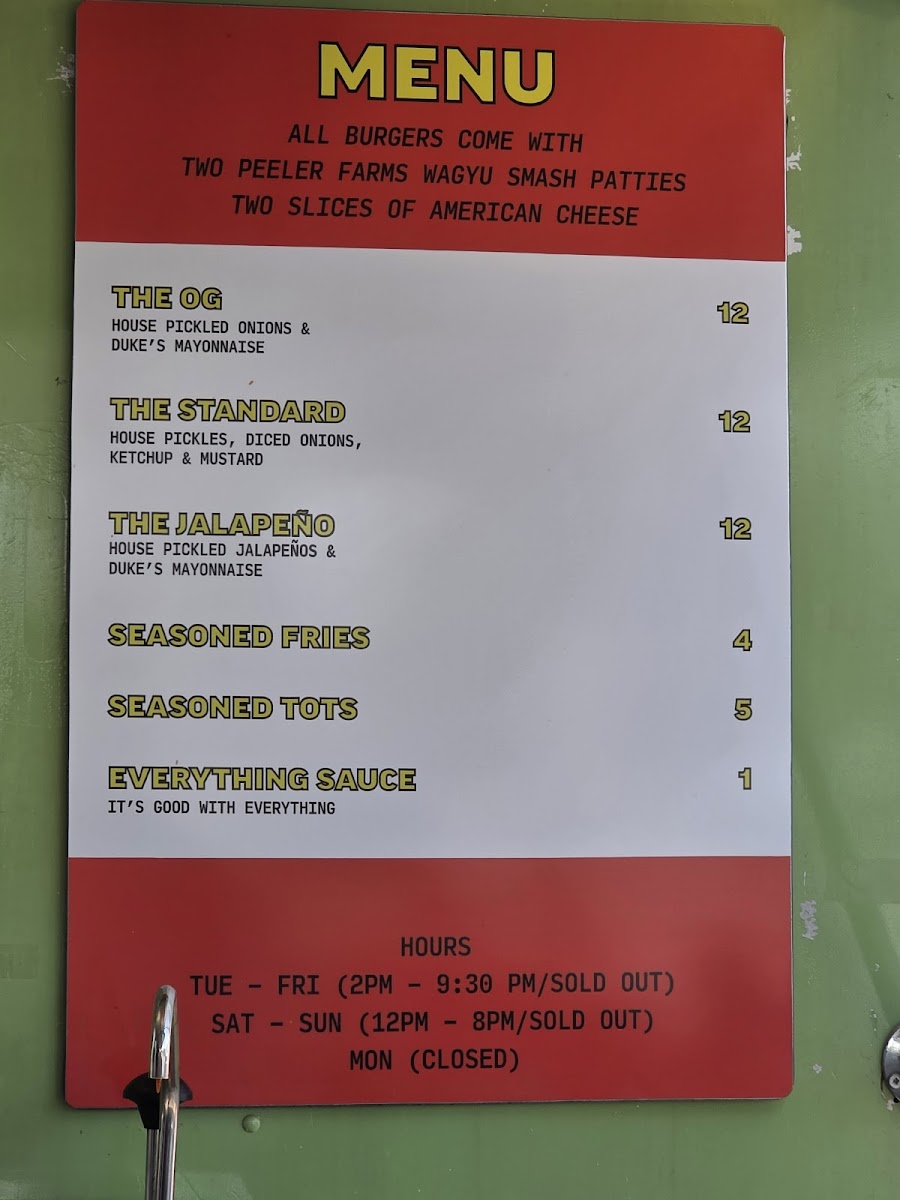 MENU
ALL BURGERS COME WITH
TWO PEELER FARMS WAGYU SMASH PATTIES
TWO SLICES OF AMERICAN CHEESE
THE OG 12
HOUSE PICKLED ONIONS &
DUKE'S MAYONNAISE
THE STANDARD 12
HOUSE PICKLES, DICED ONIONS,
KETCHUP & MUSTARD
THE JALAPEÑO 12
HOUSE PICKLED JALAPEÑOS &
DUKE'S MAYONNAISE
SEASONED FRIES 4
SEASONED TOTS 5
EVERYTHING SAUCE 1
IT'S GOOD WITH EVERYTHING
HOURS
TUE – FRI (2PM – 9:30 PM/SOLD OUT)
SAT – SUN (12PM – 8PM/SOLD OUT)
MON (CLOSED)